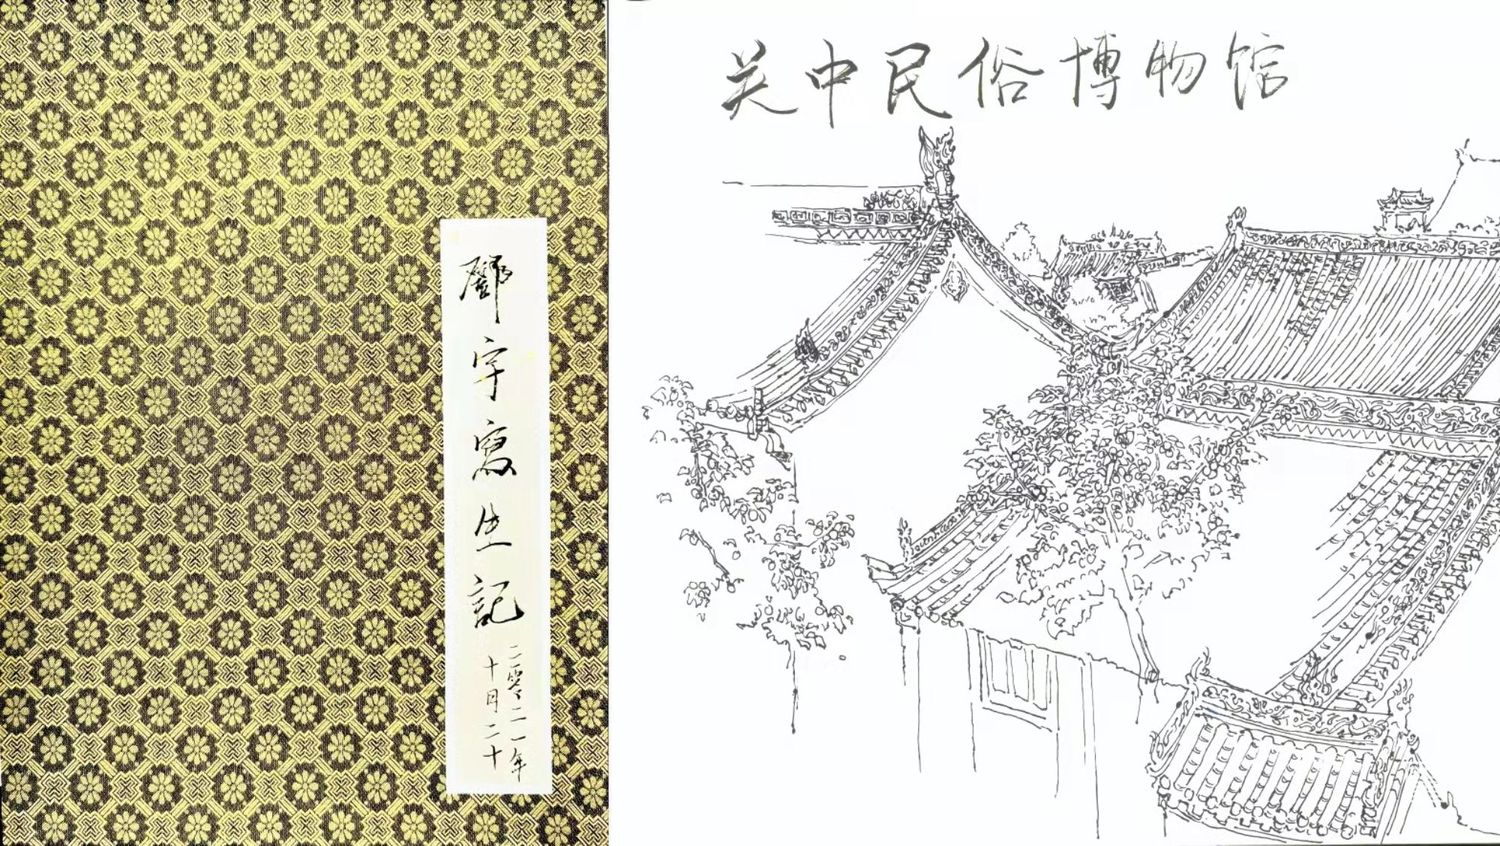 鄧宇寫生記
二零二一年
十月二十
关中民俗博物馆